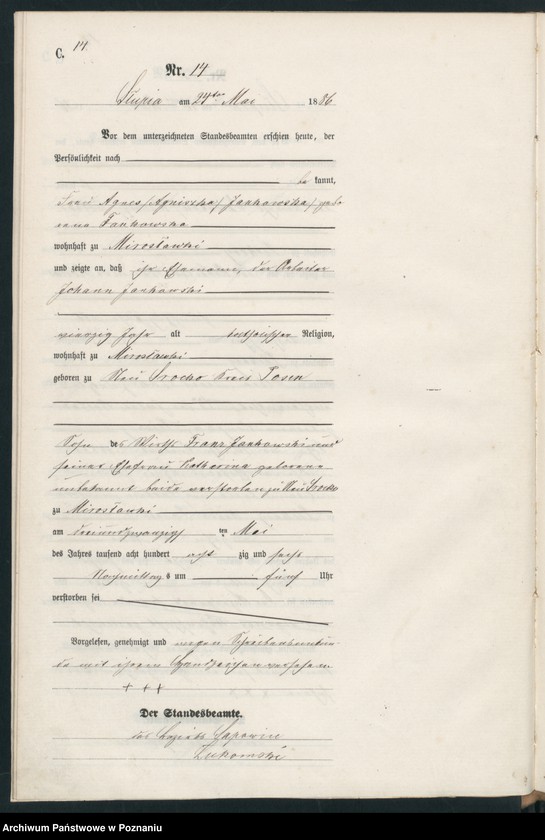 C. 14.
Nr. 14
Słupia am 24ten Mai 1886
Vor dem unterzeichneten Standesbeamten erschien heute, der
Persönlichkeit nach
be kannt,
Frau Agnes /Agnieszka/ Jankowska / gebo
rene Jankowska
wohnhaft zu Mirosławki
und zeigte an, daß ihr Ehemann, der Arbeiter
Johann Jankowski
vierzig Jahr alt katholischer Religion,
wohnhaft zu Mirosławki
geboren zu Neu Srocko Kreis Posen
Sohn des Wirths Franz Jankowski und
seiner Ehefrau Katharina geborene
unbekannt beide verstorben zu Neu Srocko
zu Mirosławki
am dreiundzwanzigsten Mai
des Jahres tausend acht hundert achtzig und sechs
Nachmittags um fünf Uhr
verstorben sei
Vorgelesen, genehmigt und wegen Schreibensunkun
de mit ihrem Handzeichen versehen
+ + +
Der Standesbeamte.
Łukomski
Archiwum Państwowe w Poznaniu